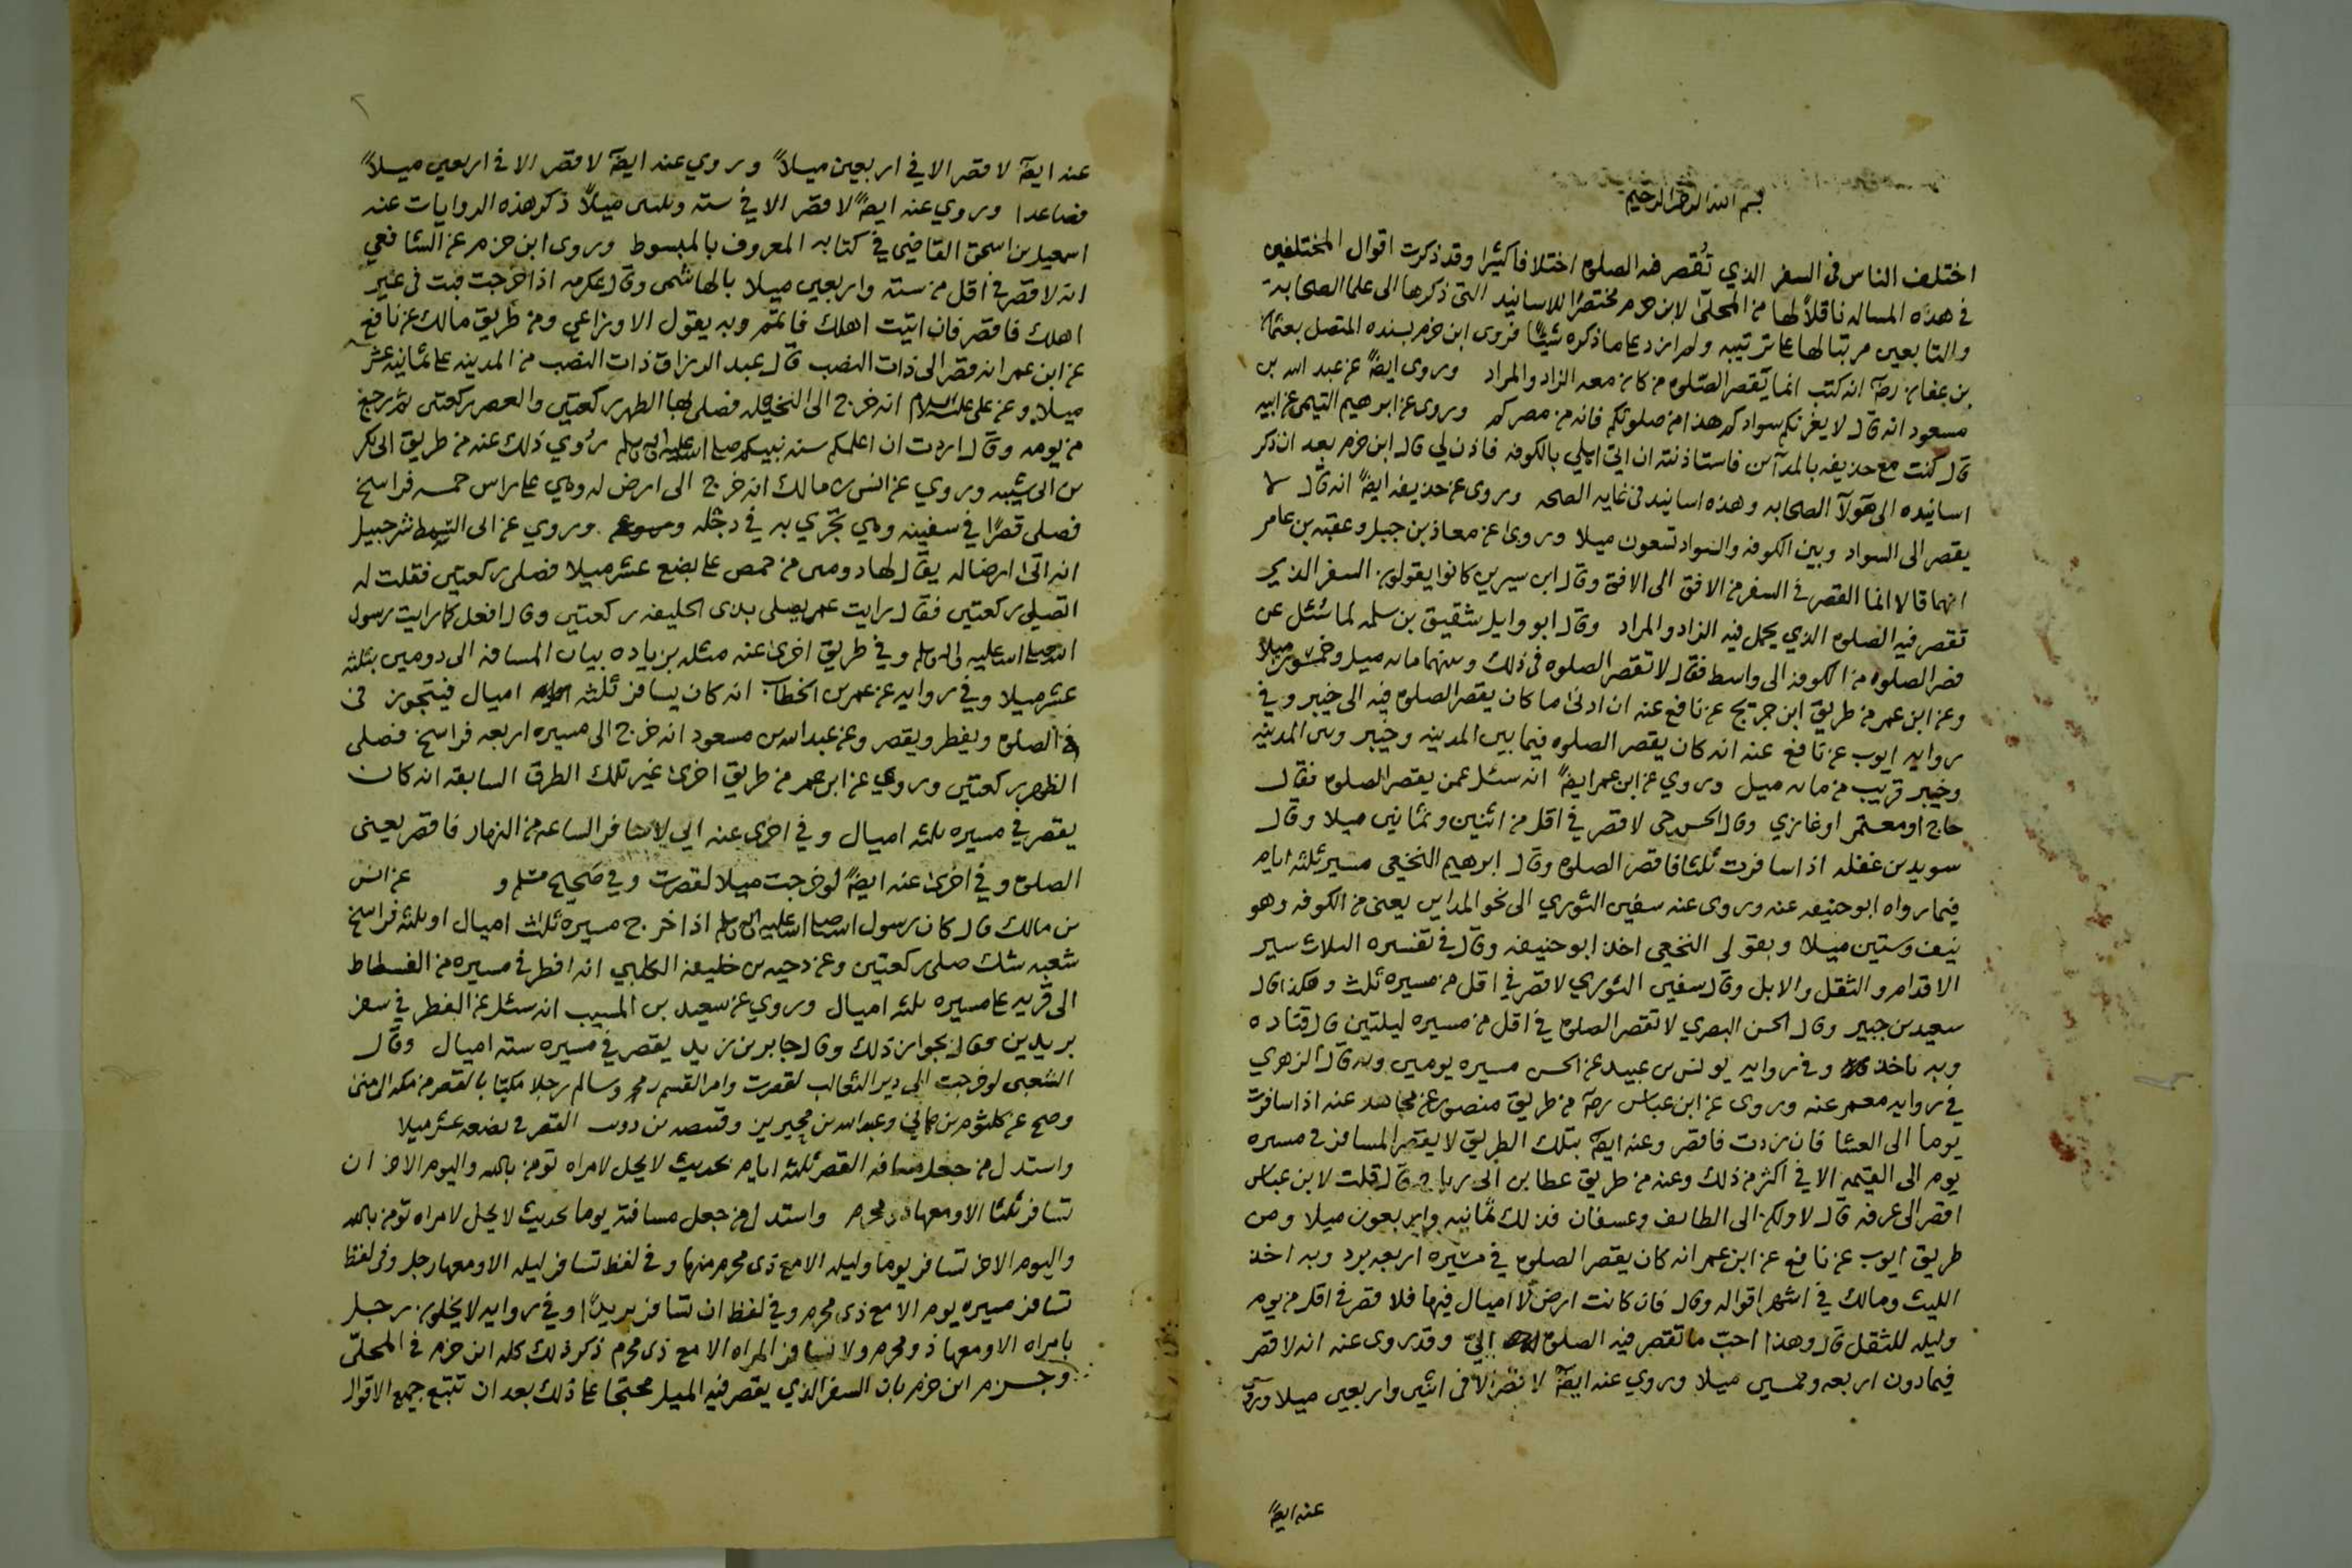 بسم الله الرحمن الرحيم
اختلف الناس في السفر الذي تُقصر فيه الصلوة اختلافا كثيرا وقد ذكرت اقوال المختلفين
في هذه المساله ناقلاً لها من المحلّى لابن حزم مختصرًا للاسانيد التي ذكرها الى علما الصحابة
والتابعين مرتبا لها على ترتيبه ولم ازد على ما ذكره شيئًا فروى ابن حزم بسنده المتصل بعثمان
بن عفان رضه انه كتب انما تقصر الصلوة من كان معه الزاد والمزاد وروى ايضًا عن عبد الله بن
مسعود انه قال لا يغرنكم سوادكم هذا من صلوتكم فانه من مصركم وروى عن ابرهيم التيمي عن ابيه
قال كنت مع حذيفه بالمدآين فاستاذنته ان اتي اهلي بالكوفه فاذن لي قال ابن حزم بعد ان ذكر
اسانيده الى هولآ الصحابه وهذه اسانيد في غايه الصحه وروى عن حذيفه ايضًا انه قال لا
يقصر الى السواد وبين الكوفه والسواد تسعون ميلا وروى عن معاذ بن جبل وعقبه بن عامر
انهما قالا انما القصر في السفر من الافق الى الافق وقال ابن سيرين كانوا يقولون السفر الذي
تقصر فيه الصلوة الذي يحمل فيه الزاد والمزاد وقال ابو وايل شقيق بن سلمه لما سُئل عن
قصر الصلوة من الكوفه الى واسط فقال لا تقصر الصلوه في ذلك وبينهما مايه ميل وخمسون ميلا
وعن ابن عمر من طريق ابن جريج عن نافع عنه ان ادنى ما كان يقصر الصلوة فيه الى خيبر وفي
روايه ايوب عن نافع عنه انه كان يقصر الصلوه فيما بين المدينه وخيبر وبين المدينه
وخيبر قريب من مايه ميل وروي عن ابن عمر ايضًا انه سئل عمن يقصر الصلوة فقال
حاج او معتمر او غازي وقال الحسن حي لا قصر في اقل من اثنين وثمانين ميلا وقال
سويد بن غفله اذا سافرت ثلثا فاقصر الصلوة وقال ابرهيم النخعي مسير ثلثه ايام
فيما رواه ابو حنيفه عنه وروى عنه سفين الثوري الى نحو المداين يعني من الكوفه وهو
نيف وستين ميلا وبقول النخعي اخذ ابو حنيفه وقال في تفسيره الثلاث سير
الاقدام والثقل والابل وقال سفين الثوري لا قصر في اقل من مسيره ثلث وهكذا قال
سعيد بن جبير وقال الحسن البصري لا تقصر الصلوة في اقل من مسيره ليلتين قال قتاده
وبه ناخذ وفي روايه يونس بن عبيد عن الحسن مسيره يومين وبه قال الزهري
في روايه معمر عنه وروى عن ابن عباس رضه من طريق منصور عن مجاهد عنه اذا سافرت
يوما الى العشا فان زدت فاقصر وعنه ايضًا بتلك الطريق لا يقصر المسافر في مسيره
يوم الى العتمه الا في اكثر من ذلك وعنه من طريق عطا بن ابي رباح قال قلت لابن عباس
اقصر الى عرفه قال لا ولكن الى الطايف وعسفان فذلك ثمانيه واربعون ميلا ومن
طريق ايوب عن نافع عن ابن عمر انه كان يقصر الصلوة في مسيره اربعه برد وبه اخذ
الليث ومالك في اشهر اقواله وقال فان كانت ارض لا اميال فيها فلا قصر في اقل من يوم
وليله للثقل قال وهذا احبّ ما تقصر فيه الصلوة اليّ وقد روى عنه انه لا قصر
فيما دون اربعه وخمسين ميلا وروي عنه ايضًا لا قصر الا في اثنين واربعين ميلا وروي
عنه ايضًا
عنه ايضًا لا قصر الا في اربعين ميلاً وروي عنه ايضًا لا قصر الا في اربعين ميلاً
فصاعدا وروي عنه ايضًا لا قصر الا في سته وثلثين ميلاً ذكر هذه الروايات عنه
اسمعيل بن اسحق القاضي في كتابه المعروف بالمبسوط وروى ابن حزم عن الشافعي
انه لا قصر في اقل من سته واربعين ميلا بالهاشمي وقال عكرمه اذا خرجت فبت في غير
اهلك فاقصر فان اتيت اهلك فاتمتم وبه يقول الاوزاعي ومن طريق مالك عن نافع
عن ابن عمر انه قصر الى ذات النصب قال عبد الرزاق ذات النصب من المدينه على ثمانيه عشر
ميلا وعن علي عليه السلام انه خرج الى النخيله فصلى بها الظهر ركعتين والعصر ركعتين ثم رجع
من يومه وقال اردت ان اعلمكم سنه نبيكم صلى الله عليه واله وسلم رُوي ذلك عنه من طريق ابي بكر
بن ابي شيبه وروي عن انس بن مالك انه خرج الى ارض له وهي على راس خمسه فراسخ
فصلى قصرًا في سفينه وهي تجري به في دجله وروي عن ابي السمط شرجبيل
انه اتى ارضا له يقال لها دومين من حمص على بضع عشر ميلا فصلى ركعتين فقلت له
اتصلي ركعتين فقال رايت عمر يصلى بذى الحليفه ركعتين وقال افعل كما رايت رسول
الله صلى الله عليه واله وسلم وفي طريق اخرى عنه مثله بزياده بيان المسافه الى دومين بثلثه
عشر ميلا وفي روايه عن عمر بن الخطاب انه كان يسافر ثلثه اميال فيتجوز في
في الصلوة ويفطر ويقصر وعن عبد الله بن مسعود انه خرج الى مسيره اربعه فراسخ فصلى
الظهر ركعتين وروي عن ابن عمر من طريق اخرى غير تلك الطرق السابقه انه كان
يقصر في مسيره ثلثه اميال وفي اخرى عنه اني لاسافر الساعه من النهار فاقصر يعني
الصلوة وفي اخرى عنه ايضًا لو خرجت ميلا لقصرت وفي صحيح مسلم و عن انس
بن مالك قال كان رسول الله صلى الله عليه واله وسلم اذا خرج مسيره ثلاث اميال او ثلثه فراسخ
شعبه شك صلى ركعتين وعن دحيه بن خليفه الكلبي انه افطر في مسيره من الفسطاط
الى قريه على مسيره ثلثه اميال وروي عن سعيد بن المسيب انه سئل عن الفطر في سفر
بريدين فقال بجواز ذلك وقال جابر بن زيد يقصر في مسيره سته اميال وقال
الشعبى لو خرجت الى دير الثعالب لقصرت وامر القسم بن محمد وسالم رجلا مكيا بالقصر من مكه الى منى
وصح عن كلثوم بن هاني وعبد الله بن محيريز وقبيصه بن ذويب القصر في بضعه عشر ميلا
واستدل من جعل مسافه القصر ثلثه ايام بحديث لا يحل لامراه تومن بالله واليوم الاخر ان
تسافر ثلثا الا ومعها ذو محرم واستدل من جعل مسافته يوما بحديث لا يحل لامراه تومن بالله
واليوم الاخر تسافر يوما وليله الا مع ذى محرم منها وفي لفظ تسافر ليله الا ومعها رجل وفي لفظ
تسافر مسيره يوم الا مع ذى محرم وفي لفظ ان تسافر بريدًا وفي روايه لا يخلون رجل
بامراه الا ومعها ذو محرم ولا تسافر المراه الا مع ذى محرم ذكر ذلك كله ابن حزم في المحلّى
وجزم ابن حزم بان السفر الذي يقصر فيه الميل محتجا على ذلك بعد ان تتبع جميع الاقوال